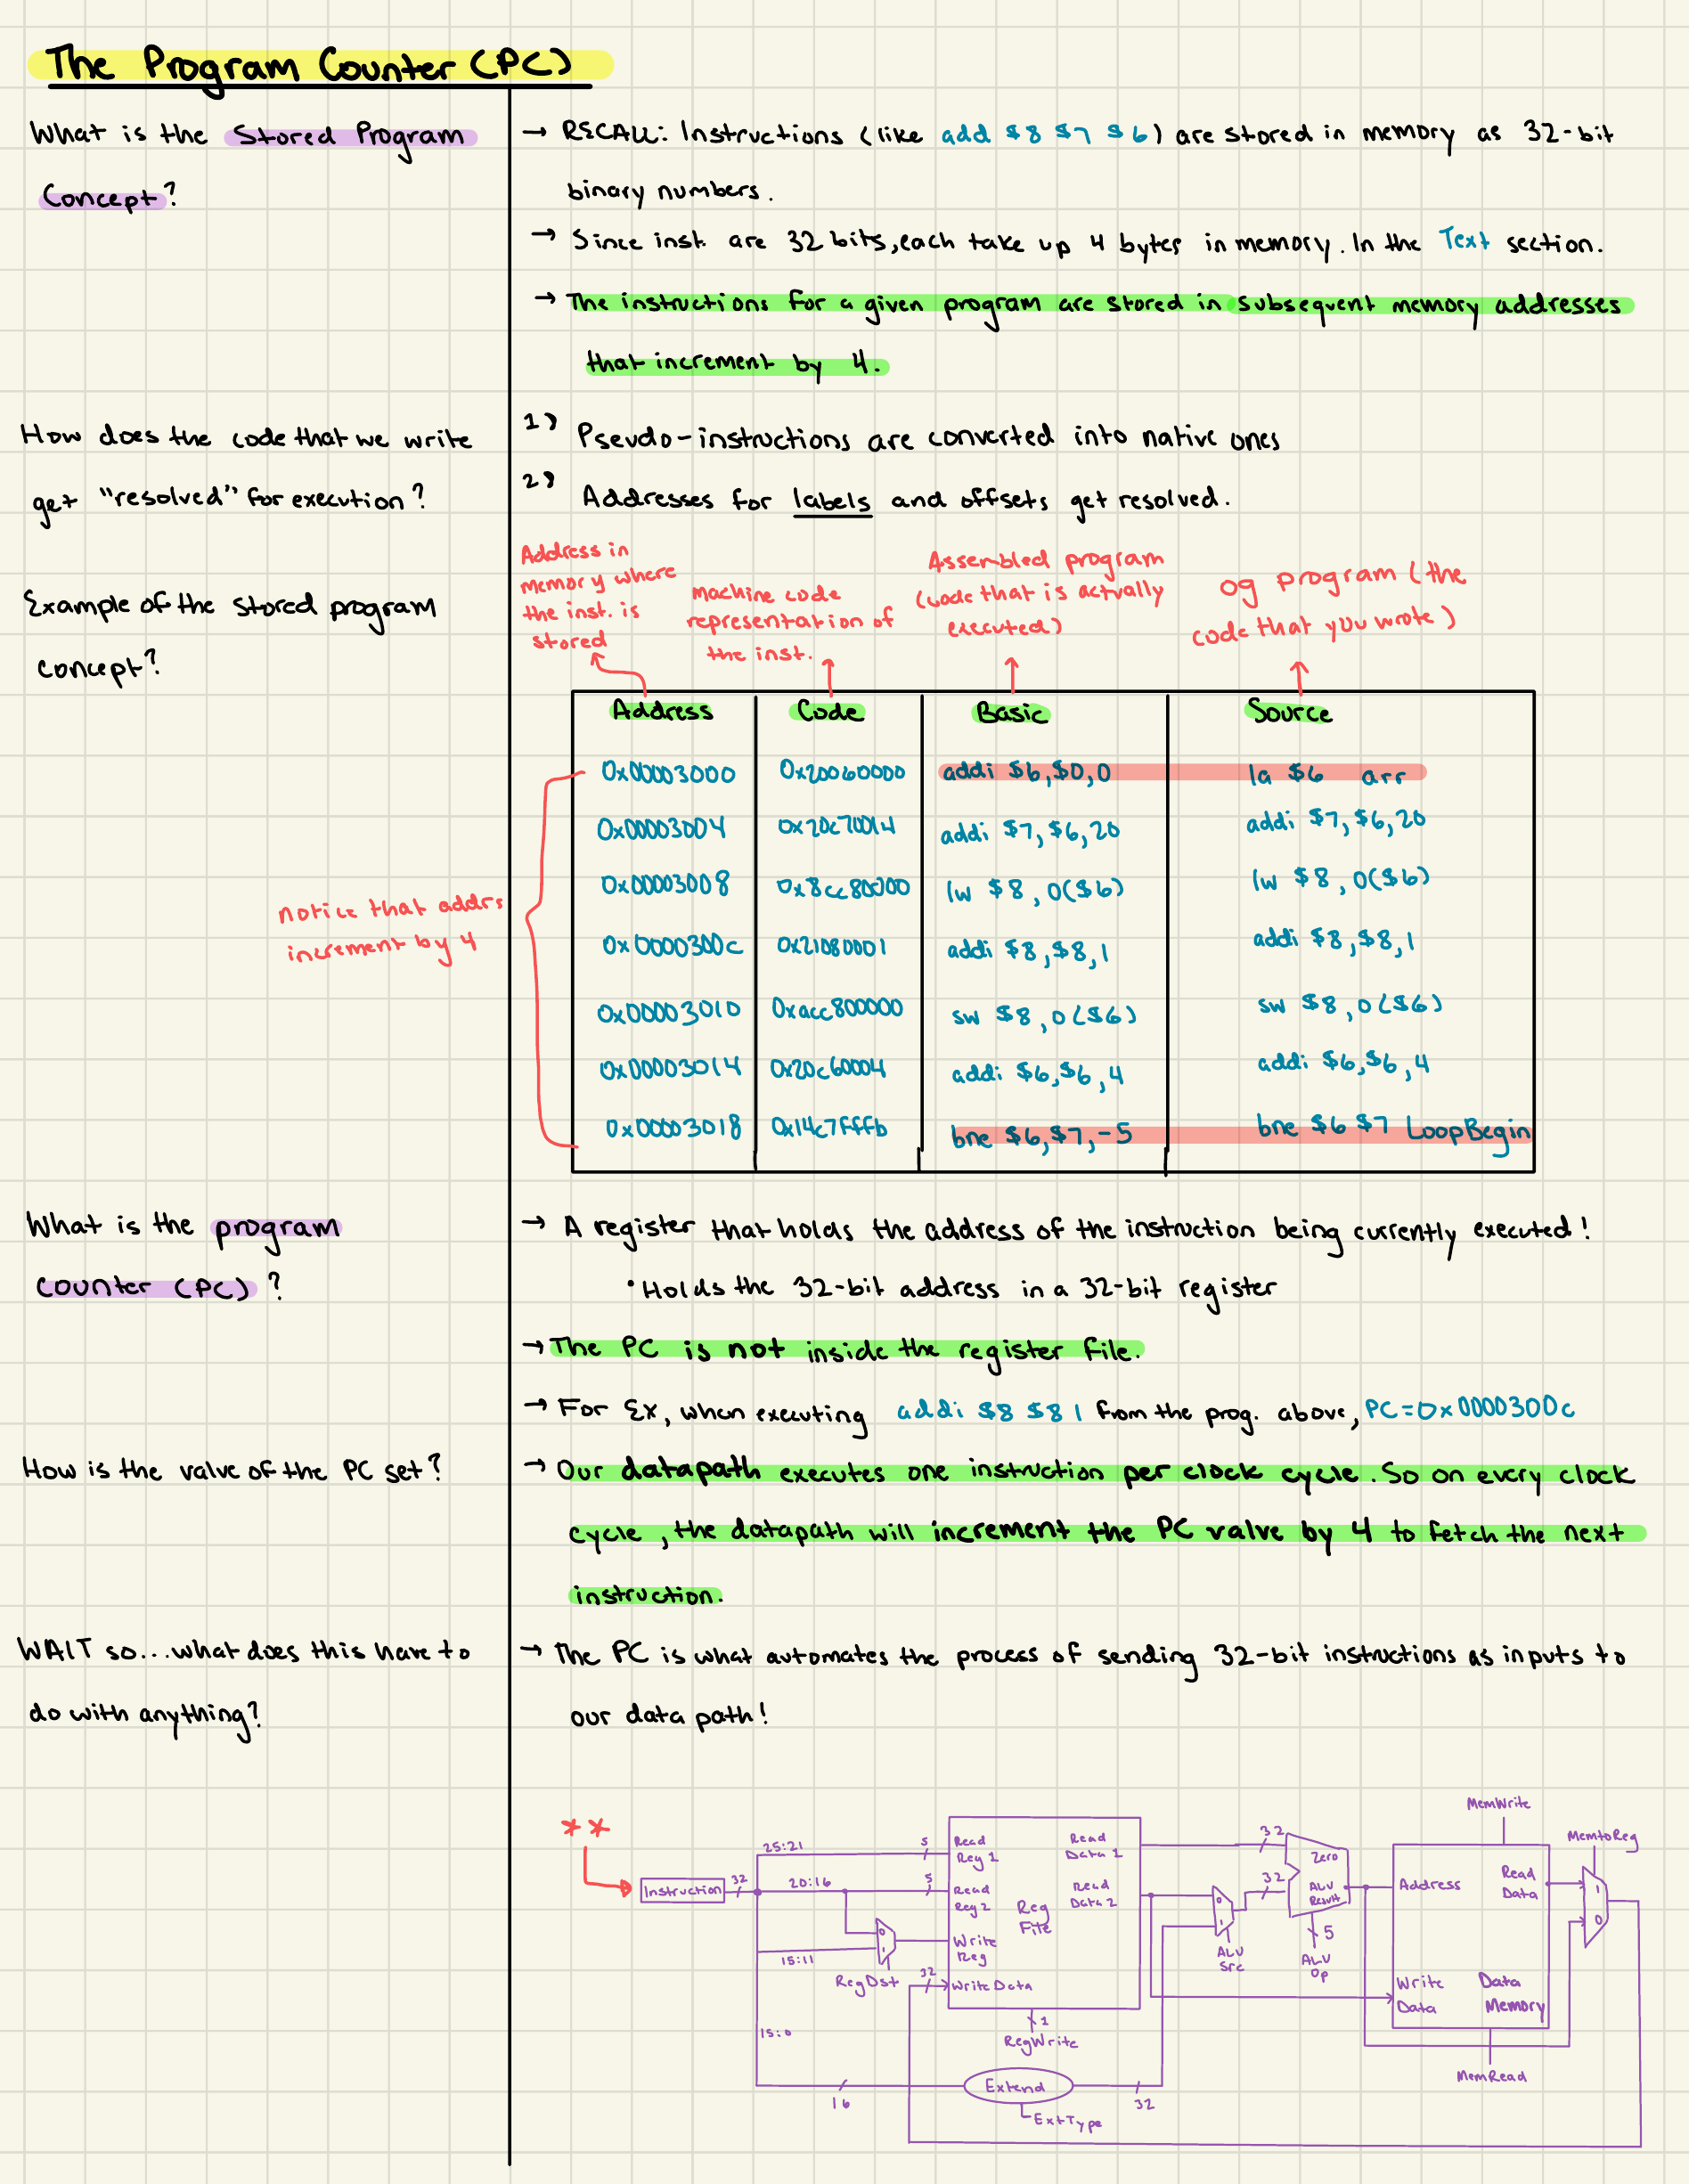 The Program Counter (PC)
What is the Stored Program
Concept?
→ RECALL: Instructions (like add $8 $7 $6) are stored in memory as 32-bit
binary numbers.
→ Since inst. are 32 bits, each take up 4 bytes in memory. In the Text section.
→ The instructions for a given program are stored in subsequent memory addresses
that increment by 4.
How does the code that we write
get "resolved" for execution?
1) Pseudo-instructions are converted into native ones
2) Addresses for labels and offsets get resolved.
Example of the stored program
concept?
Address in
memory where
the inst. is
stored
Machine code
representation of
the inst.
Assembled program
(code that is actually
executed)
og program (the
code that you wrote)
Address Code Basic Source
0x00003000 0x20060000 addi $6,$0,0 la $6 arr
0x00003004 0x20c70014 addi $7,$6,20 addi $7,$6,20
0x00003008 0x8cc80000 lw $8, 0($6) lw $8, 0($6)
0x0000300c 0x21080001 addi $8,$8,1 addi $8,$8,1
0x00003010 0xacc800000 sw $8, 0($6) sw $8, 0($6)
0x00003014 0x20c60004 addi $6,$6,4 addi $6,$6,4
0x00003018 0x14c7fffb bne $6,$7,-5 bne $6 $7 LoopBegin
notice that addrs
increment by 4
What is the program
counter (PC)?
→ A register that holds the address of the instruction being currently executed!
• Holds the 32-bit address in a 32-bit register
→ The PC is not inside the register file.
→ For Ex, when executing addi $8 $8 1 from the prog. above, PC=0x0000300c
How is the value of the PC set?
→ Our datapath executes one instruction per clock cycle. So on every clock
cycle, the datapath will increment the PC value by 4 to fetch the next
instruction.
WAIT so...what does this have to
do with anything?
→ The PC is what automates the process of sending 32-bit instructions as inputs to
our data path!
**
Instruction
32
25:21
5
20:16
5
15:11
RegDst
0
1
32
15:0
16
Read
Reg 1
Read
Reg 2
Write
Reg
Write Data
Reg
File
Read
Data 1
Read
Data 2
1
RegWrite
Extend
ExtType
32
0
1
ALU
Src
32
32
Zero
ALU
Result
5
ALU
Op
MemWrite
Address
Read
Data
Write
Data
Data
Memory
MemRead
MemtoReg
1
0